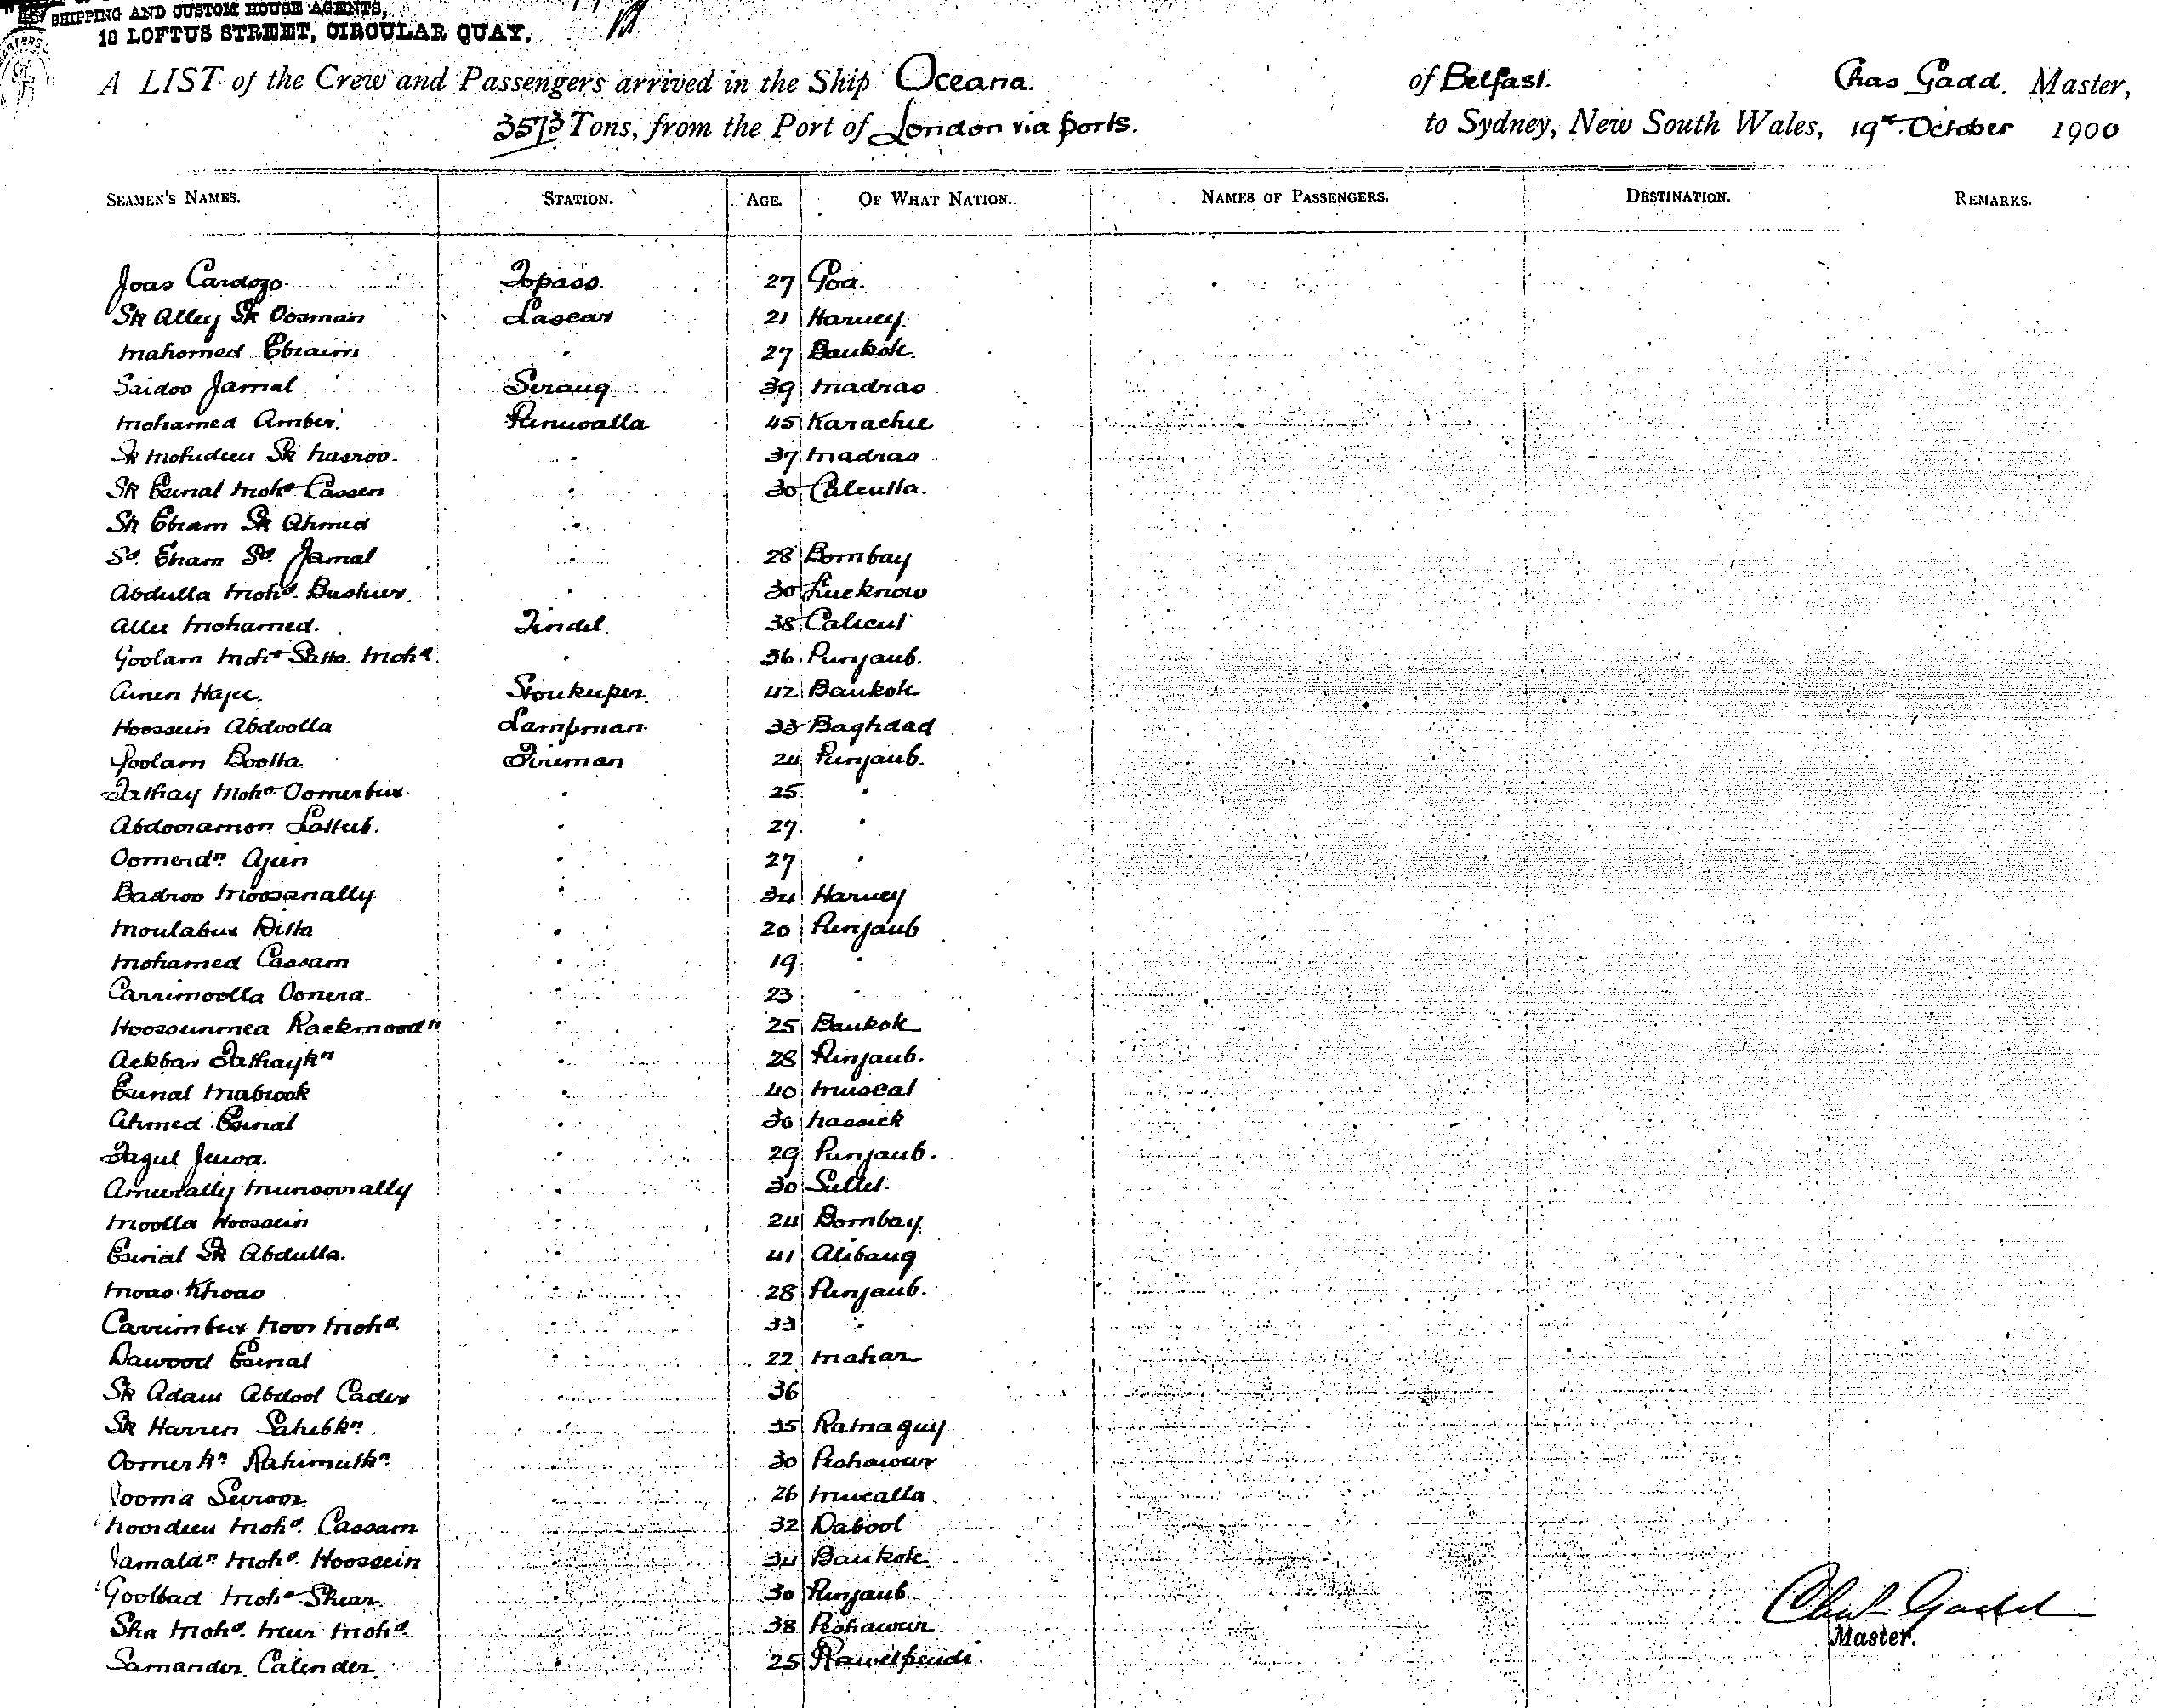 SHIPPING AND CUSTOM HOUSE AGENTS,
18 LOFTUS STREET, CIRCULAR QUAY.
A LIST of the Crew and Passengers arrived in the Ship Oceana. of Belfast. Chas Gadd. Master,
3573 Tons, from the Port of London via ports. to Sydney, New South Wales, 19th October 1900
SEAMEN'S NAMES. STATION. AGE. OF WHAT NATION. NAMES OF PASSENGERS. DESTINATION. REMARKS.
Joas Cardozo Topass. 27 Goa.
Sk Alley Sk Oosman Lascar 21 Harney
Mahomed Ebraim " 27 Baukok
Saidoo Jamal Serang 39 Madras
Mohamed Amber. Paniwalla 45 Karachee
Sk Mohudeen Sk Nasroo. " 37 Madras
Sk Esmal Mohd Cassen " 30 Calcutta.
Sk Ebram Sk Ahmed "
Sd. Ebram Sd. Jamal " 28 Bombay
Abdulla Mohd. Busheer. " 30 Lucknow
Allee Mohamed. Tindel 38 Calicut
Goolam Mohd Satta Mohd. " 36 Punjaub.
Amen Hajee. Storekeeper 42 Baukok
Hoossein Abdoolla Lampman. 33 Baghdad
Goolam Bootta. Fireman 24 Punjaub.
Fathay Mohd Oomerbux. " 25 "
Abdooramon Lattub. " 27 "
Oomerdn Ajeen " 27 "
Badroo Moosanally. " 34 Harney
Moulabux Ditta " 20 Punjaub
Mohamed Cassam " 19 "
Carrimoolla Oomera. " 23 "
Hoossunmea Rackmoodn " 25 Baukok
Ackbar Fathaykn " 28 Punjaub.
Esmal Mabrook " 40 Muscat
Ahmed Esmal " 36 Nassick
Fazul Jeewa. " 29 Punjaub.
Ameerally Munsoorally " 30 Sillet.
Moolla Hoossein " 24 Bombay
Esmal Sk Abdulla. " 41 Alibaug
Moas Khoas " 28 Punjaub.
Carrimbux Noor Mohd. " 33 "
Dawood Esmal " 22 Mahar
Sk Adam Abdool Cader " 36
Sk Harren Sahebkn. " 35 Ratnaguy
Oomerkn Rahimutkn. " 30 Peshawur
Jooma Suroor. " 26 Mucalla
Noordeen Mohd. Cassam " 32 Dabool
Jamaldn Mohd. Hoossein " 34 Baukok
Goolbad Mohd Shear. " 30 Punjaub
Sha Mohd. Meer Mohd. " 38 Peshawur
Samander Calender. " 25 Rawelpendi
Chas Gadd
Master.